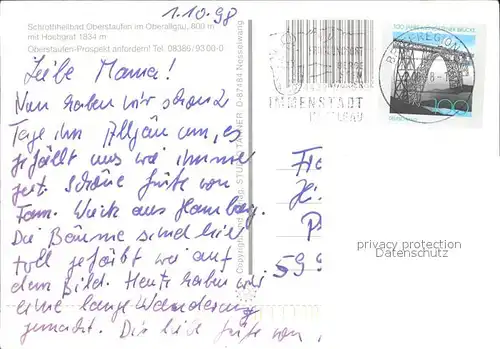 1.10.98
Schrothheilbad Oberstaufen im Oberallgäu, 800 m
mit Hochgrat 1834 m
Oberstaufen-Prospekt anfordern! Tel. 08386/9300-0
Liebe Mama!
Nun haben wir schon 2
Tage im Allgäu um, es
gefällt uns wie immer
gut. Schöne Grüße von
Fam. aus Hamburg.
Die Bäume sind hier
toll gefärbt wie auf
dem Bild. Heute haben wir
eine lange Wanderung
gemacht. Die liebe Grüße von
D-87484 Nesselwang
Copyright
IMMENSTADT
IM ALLGÄU
BRIEFREGION
100
Fr
H
P
599
privacy protection
Datenschutz